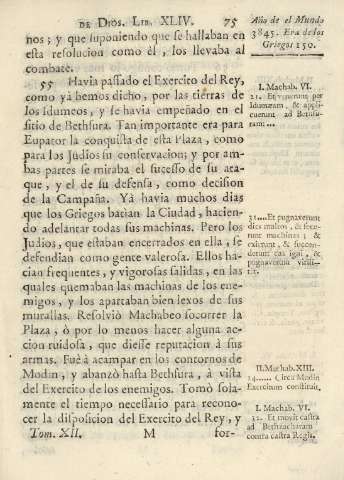 DE DIOS. LIB. XLIV. 75
nos; y que suponiendo que se hallaban en
esta resolucion como èl, los llevaba al
combate.
55 Havia passado el Exercito del Rey,
como yà hemos dicho, por las tierras de
los Idumeos, y se havia empeñado en el
sitio de Bethsura. Tan importante era para
Eupator la conquista de esta Plaza, como
para los Judios su conservacion; y por am-
bas partes se miraba el sucesso de su ata-
que, y el de su defensa, como decision
de la Campaña. Yà havia muchos dias
que los Griegos batian la Ciudad, hacien-
do adelantar todas sus machinas. Pero los
Judios, que estaban encerrados en ella, se
defendian como gente valerosa. Ellos ha-
cian frequentes, y vigorosas salidas, en las
quales quemaban las machinas de los ene-
migos, y los apartaban bien lexos de sus
murallas. Resolviò Machabeo socorrer la
Plaza, ò por lo menos hacer alguna ac-
cion ruidosa, que diesse reputacion à sus
armas. Fuè à acampar en los contornos de
Modin, y abanzò hasta Bethsura, à vista
del Exercito de los enemigos. Tomò sola-
mente el tiempo necessario para recono-
cer la disposicion del Exercito del Rey, y
Tom. XII. M for-
Año de el Mundo
3845. Era de los
Griegos 150.
I. Machab. VI.
31. Et venerunt per
Idumæam, & appli-
cuerunt ad Bethsu-
ram...
31....Et pugnaverunt
dies multos, & fece-
runt machinas; &
exierunt, & succen-
derunt eas igni, &
pugnaverunt virili-
ter.
II. Machab. XIII.
14...... Circa Modin
Exercitum constituit.
I. Machab. VI.
32. Et movit castra
ad Bethzacharam
contra castra Regis.